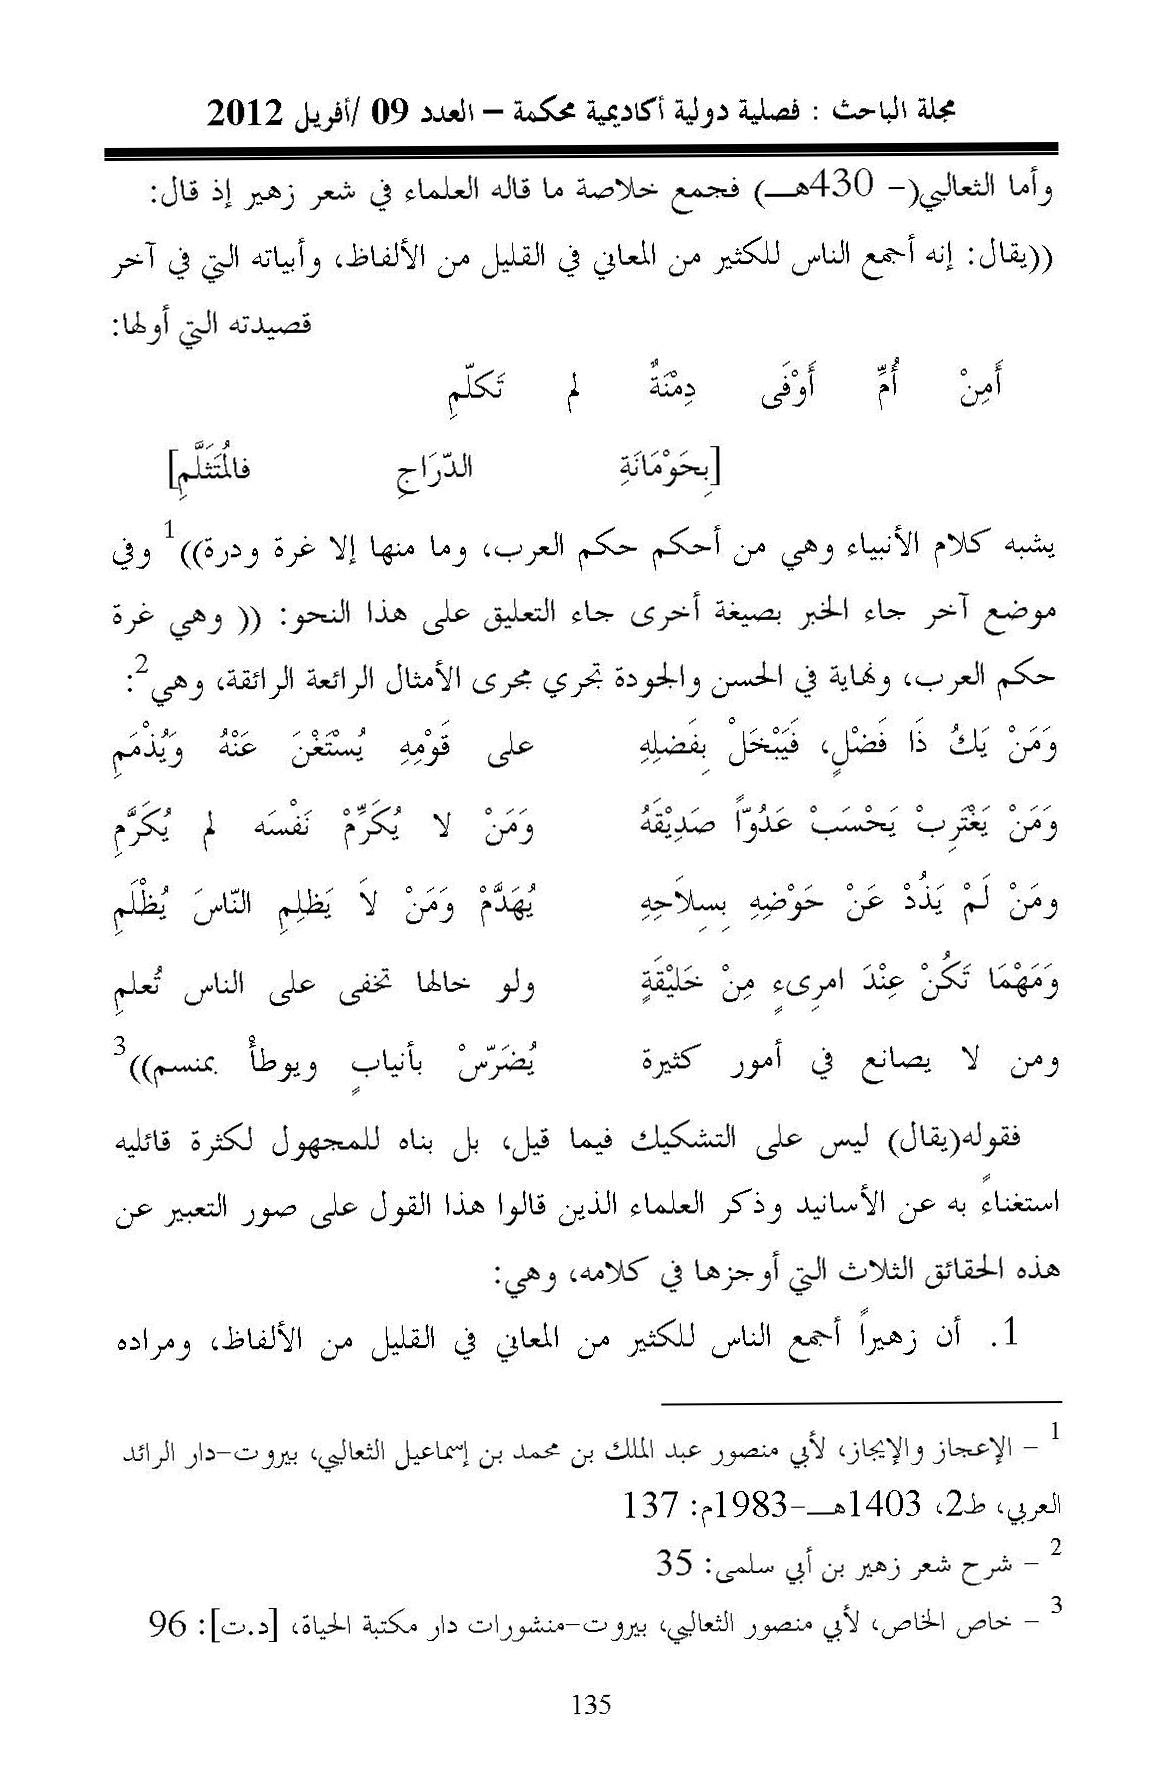 مجلة الباحث : فصلية دولية أكاديمية محكمة – العدد 09 /أفريل 2012
وأما الثعالبي(- 430هـ) فجمع خلاصة ما قاله العلماء في شعر زهير إذ قال:
((يقال: إنه أجمع الناس للكثير من المعاني في القليل من الألفاظ، وأبياته التي في آخر
قصيدته التي أولها:
أَمِنْ أُمِّ أَوْفَى دِمْنَةٌ لم تَكلّمِ
[بِحَوْمَانَةِ الدّرَاجِ فالمُتَثَلَّمِ]
يشبه كلام الأنبياء وهي من أحكم حكم العرب، وما منها إلا غرة ودرة))1 وفي
موضع آخر جاء الخبر بصيغة أخرى جاء التعليق على هذا النحو: (( وهي غرة
حكم العرب، ونهاية في الحسن والجودة تجري مجرى الأمثال الرائعة الرائقة، وهي2:
وَمَنْ يَكُ ذَا فَضْلٍ، فَيَبْخَلْ بِفَضلِهِ على قَوْمِهِ يُسْتَغْنَ عَنْهُ وَيُذْمَمِ
وَمَنْ يَغْتَرِبْ يَحْسَبْ عَدُوّاً صَدِيْقَهُ وَمَنْ لا يُكَرِّمْ نَفْسَه لم يُكَرَّمِ
ومَنْ لَمْ يَذُدْ عَنْ حَوْضِهِ بِسِلاَحِهِ يُهَدَّمْ وَمَنْ لاَ يَظلِمِ النّاسَ يُظْلَمِ
وَمَهْمَا تَكُنْ عِنْدَ امرِىءٍ مِنْ خَلِيْقَةٍ ولو خالها تخفى على الناس تُعلمِ
ومن لا يصانع في أمور كثيرة يُضَرّسْ بأنيابٍ ويوطأْ بمنسم))3
فقوله(يقال) ليس على التشكيك فيما قيل، بل بناه للمجهول لكثرة قائليه
استغناءً به عن الأسانيد وذكر العلماء الذين قالوا هذا القول على صور التعبير عن
هذه الحقائق الثلاث التي أوجزها في كلامه، وهي:
1. أن زهيراً أجمع الناس للكثير من المعاني في القليل من الألفاظ، ومراده
1 – الإعجاز والإيجاز، لأبي منصور عبد الملك بن محمد بن إسماعيل الثعالبي، بيروت-دار الرائد
العربي، ط2، 1403هـ-1983م: 137
2 – شرح شعر زهير بن أبي سلمى: 35
3 – خاص الخاص، لأبي منصور الثعالبي، بيروت-منشورات دار مكتبة الحياة، [د.ت]: 96
135